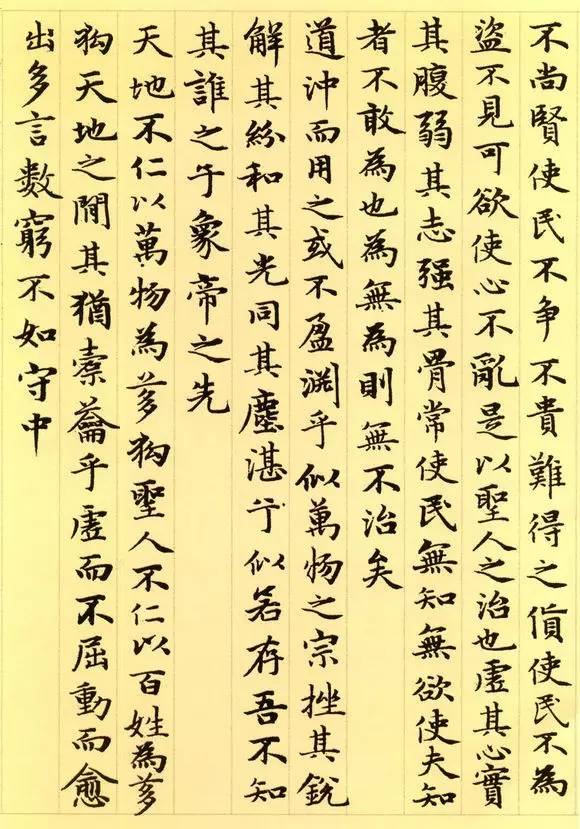 不尚賢使民不爭不貴難得之貨使民不為
盜不見可欲使心不亂是以聖人之治也虛其心實
其腹弱其志强其骨常使民無知無欲使夫知
者不敢為也為無為則無不治矣
道沖而用之或不盈淵乎似萬物之宗挫其銳
解其紛和其光同其塵湛兮似若存吾不知
其誰之子象帝之先
天地不仁以萬物為芻狗聖人不仁以百姓為芻
狗天地之間其猶橐蘥乎虛而不屈動而愈
出多言數窮不如守中